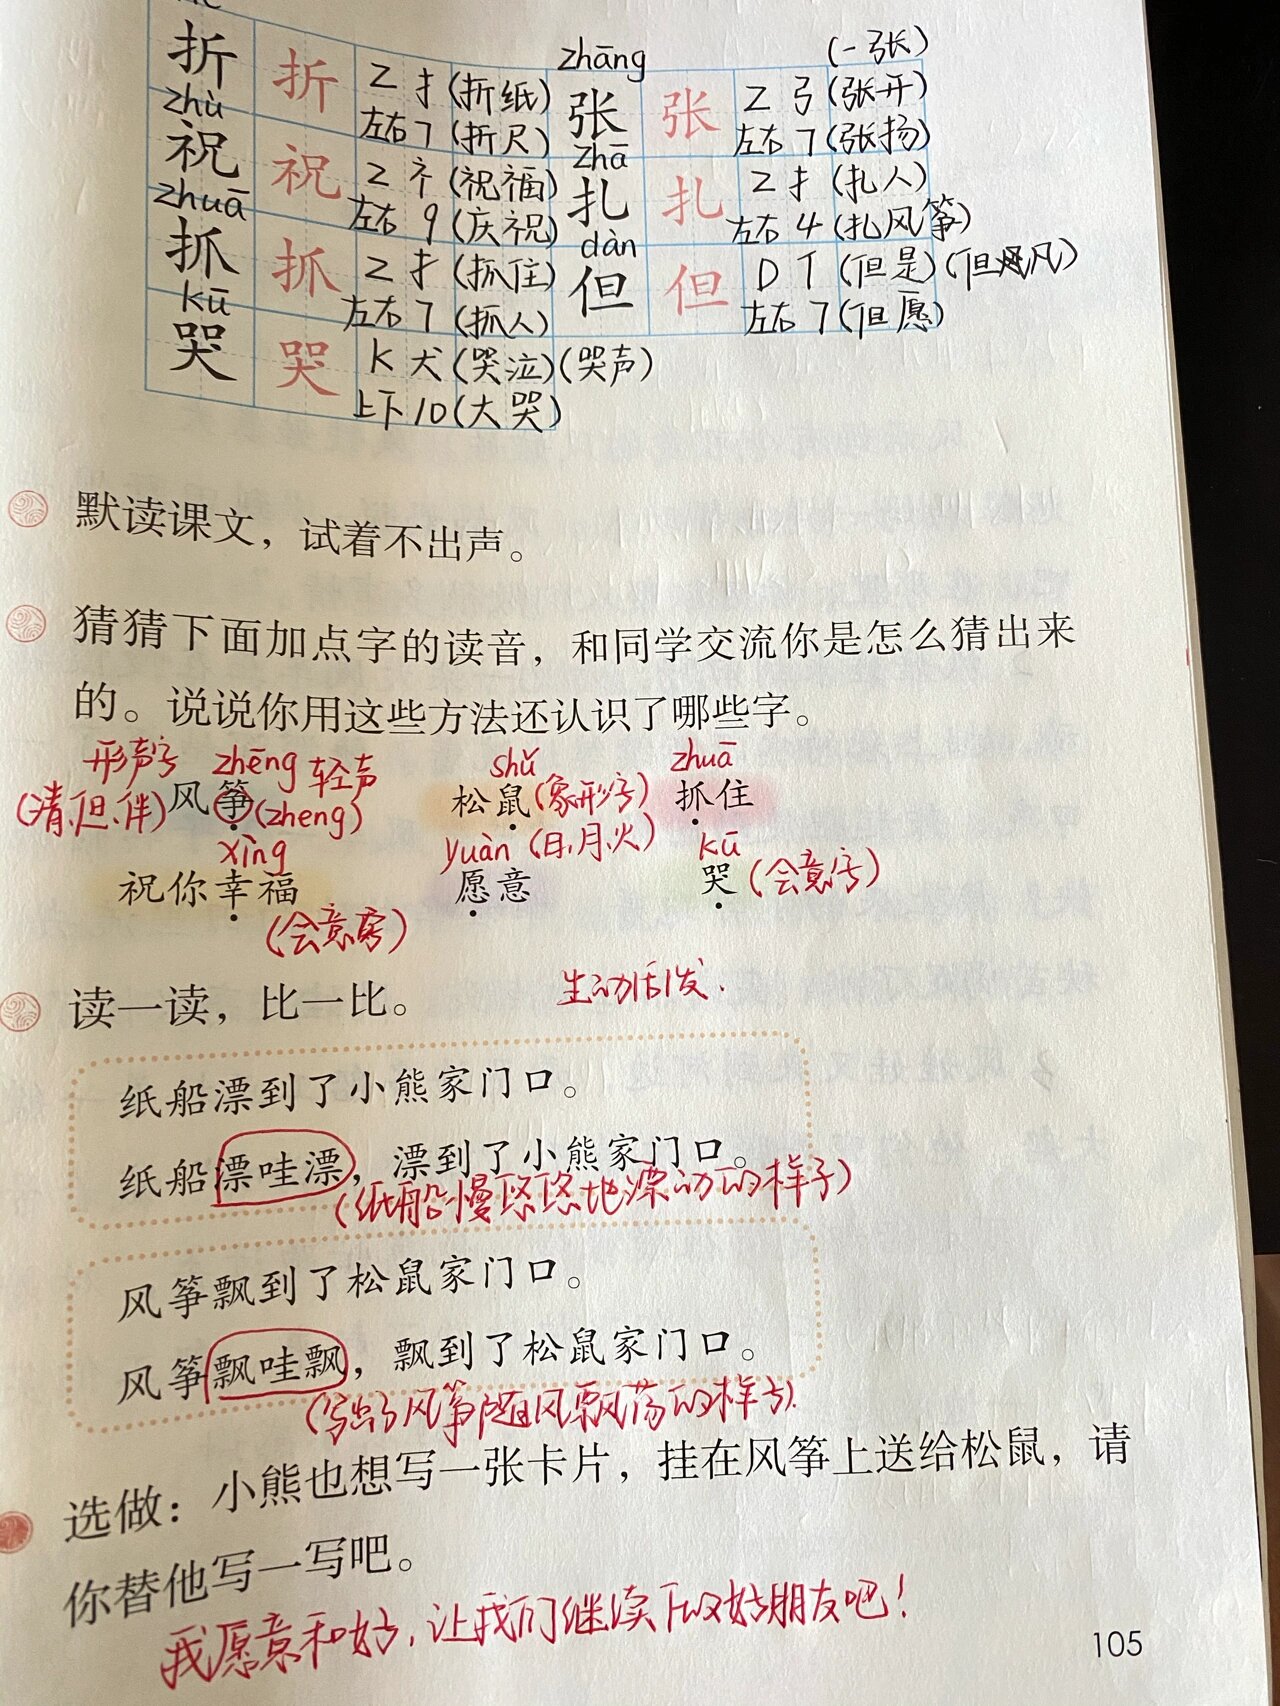 zhāng (一张)
折 折 Z 扌 (折纸) 张 张 Z 弓 (张开)
左右 7 (折尺) 左右 7 (张扬)
zhù zhā
祝 祝 Z 礻 (祝福) 扎 扎 Z 扌 (扎人)
左右 9 (庆祝) 左右 4 (扎风筝)
zhuā dàn
抓 抓 Z 扌 (抓住) 但 但 D 亻 (但是) (但凡)
左右 7 (抓人) 左右 7 (但愿)
kū
哭 哭 K 犬 (哭泣) (哭声)
上下 10 (大哭)
默读课文，试着不出声。
猜猜下面加点字的读音，和同学交流你是怎么猜出来
的。说说你用这些方法还认识了哪些字。
形声字 zhēng 轻声 shǔ zhuā
(清、但、伴) 风筝 (zheng) 松鼠 (象形字) 抓住
xìng yuàn (日、月、火) kū
祝你幸福 愿意 哭 (会意字)
(会意字)
读一读，比一比。 生动活泼.
纸船漂到了小熊家门口。
纸船漂哇漂，漂到了小熊家门口。
(纸船慢悠悠地漂动的样子)
风筝飘到了松鼠家门口。
风筝飘哇飘，飘到了松鼠家门口。
(写出了风筝随风飘荡的样子).
选做：小熊也想写一张卡片，挂在风筝上送给松鼠，请
你替他写一写吧。
我愿意和好，让我们继续做好朋友吧！
105